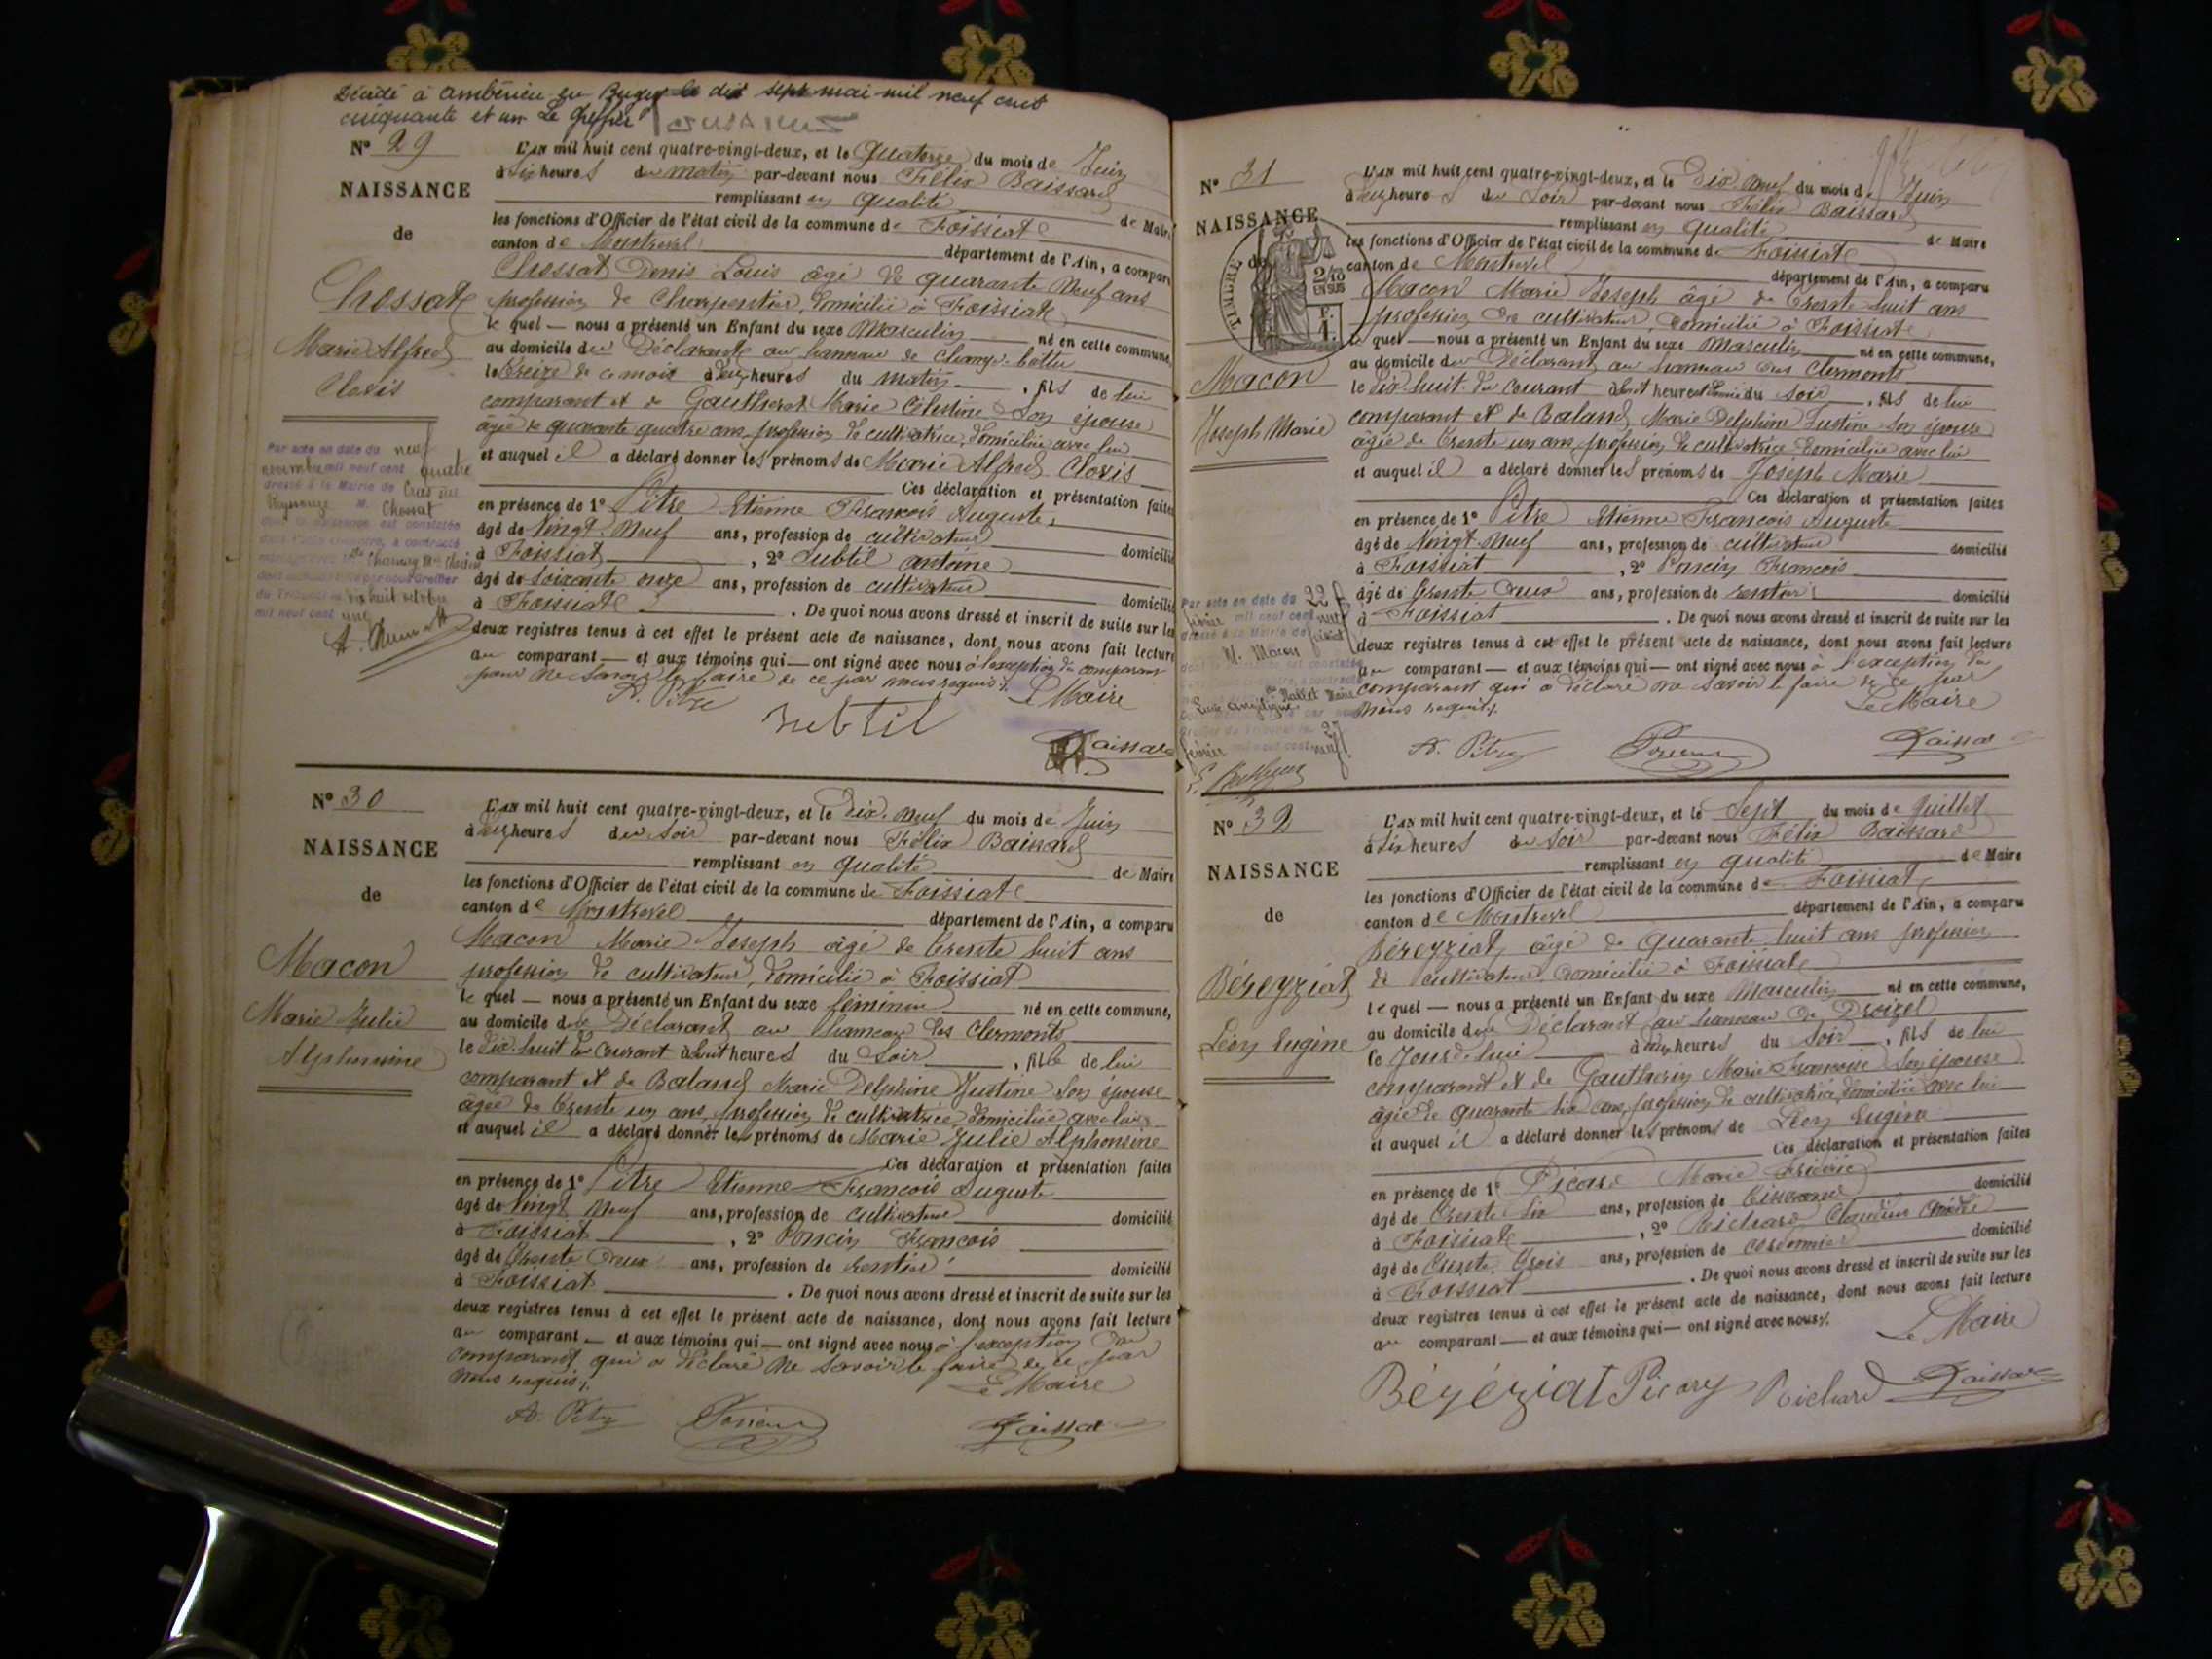 Décédé à Ambérieu en Bugey le dix sept mai mil neuf cent
cinquante et un Le Greffier
N° 29
NAISSANCE
de
Chossat
Marie Alfred
Clovis
Par acte en date du neuf
novembre mil neuf cent quatre
dressé à la Mairie de Cras sur
Reyssouze M. Chossat
dont la naissance est constatée
dans l'acte ci-contre, a contracté
mariage avec
du Tribunal
mil neuf cent
L'AN mil huit cent quatre-vingt-deux, et le Quatorze du mois de Juin
à six heures du matin par-devant nous Félix Baissard
remplissant en qualité de Maire
les fonctions d'Officier de l'état civil de la commune de Foissiat
canton de Montrevel département de l'Ain, a comparu
Chossat Denis Louis âgé de quarante neuf ans
profession de Charpentier, domicilié à Foissiat
le quel — nous a présenté un Enfant du sexe Masculin né en cette commune,
au domicile du Déclarant au hameau de
le treize de ce mois à heures du matin , fils de lui
comparant et de Gautheret Marie Célestine Son épouse
âgée de quarante quatre ans, profession de cultivatrice, domiciliée avec lui
et auquel il a déclaré donner les prénoms de Marie Alfred Clovis
Ces déclaration et présentation faites
en présence de 1° Pitre Etienne François Auguste,
âgé de Vingt Neuf ans, profession de cultivateur domicilié
à Foissiat , 2° Subtil Antoine
âgé de Soixante onze ans, profession de cultivateur domicilié
à Foissiat . De quoi nous avons dressé et inscrit de suite sur les
deux registres tenus à cet effet le présent acte de naissance, dont nous avons fait lecture
au comparant — et aux témoins qui — ont signé avec nous à l'exception du comparant
pour ne savoir le faire de ce par nous requis
Le Maire
A. Pitre
Subtil
Baissard
N° 30
NAISSANCE
de
Macon
Marie Julie
Alphonsine
L'AN mil huit cent quatre-vingt-deux, et le Dix Neuf du mois de Juin
à heures du soir par-devant nous Félix Baissard
remplissant en qualité de Maire
les fonctions d'Officier de l'état civil de la commune de Foissiat
canton de Montrevel département de l'Ain, a comparu
Macon Marie Joseph âgé de trente huit ans
profession de cultivateur, domicilié à Foissiat
le quel — nous a présenté un Enfant du sexe féminin né en cette commune,
au domicile du Déclarant au hameau des Clermonts
le Dix huit du courant à huit heures du Soir , fille de lui
comparant et de Baland Marie Delphine Justine Son épouse
âgée de trente un ans, profession de cultivatrice, domiciliée avec lui
et auquel il a déclaré donner les prénoms de Marie Julie Alphonsine
Ces déclaration et présentation faites
en présence de 1° Pitre Etienne François Auguste
âgé de Vingt Neuf ans, profession de cultivateur domicilié
à Foissiat , 2° Poncin François
âgé de trente deux ans, profession de rentier domicilié
à Foissiat . De quoi nous avons dressé et inscrit de suite sur les
deux registres tenus à cet effet le présent acte de naissance, dont nous avons fait lecture
au comparant — et aux témoins qui — ont signé avec nous à l'exception du
comparant qui a déclaré ne savoir le faire de ce par
nous requis
Le Maire
A. Pitre
Poncin
Baissard
N° 31
NAISSANCE
de
TIMBRE
2/10
EN SUS
Macon
Joseph Marie
Par acte en date du 22
février mil neuf cent neuf
dressé à la Mairie de Foissiat
M. Macon
février mil neuf cent neuf
L'AN mil huit cent quatre-vingt-deux, et le Dix Neuf du mois de Juin
à heures du Soir par-devant nous Félix Baissard
remplissant en qualité de Maire
les fonctions d'Officier de l'état civil de la commune de Foissiat
canton de Montrevel département de l'Ain, a comparu
Macon Marie Joseph âgé de trente huit ans
profession de cultivateur, domicilié à Foissiat
le quel — nous a présenté un Enfant du sexe Masculin né en cette commune,
au domicile du Déclarant au hameau des Clermonts
le Dix huit du courant à huit heures et demie du Soir , fils de lui
comparant et de Baland Marie Delphine Justine Son épouse
âgée de trente un ans, profession de cultivatrice domiciliée avec lui
et auquel il a déclaré donner les prénoms de Joseph Marie
Ces déclaration et présentation faites
en présence de 1° Pitre Etienne François Auguste
âgé de Vingt Neuf ans, profession de cultivateur domicilié
à Foissiat , 2° Poncin François
âgé de trente deux ans, profession de rentier domicilié
à Foissiat . De quoi nous avons dressé et inscrit de suite sur les
deux registres tenus à cet effet le présent acte de naissance, dont nous avons fait lecture
au comparant — et aux témoins qui — ont signé avec nous à l'exception du
comparant qui a déclaré ne savoir le faire de ce par
nous requis
Le Maire
A. Pitre
Poncin
Baissard
N° 32
NAISSANCE
de
Béreyziat
Léon Eugène
L'AN mil huit cent quatre-vingt-deux, et le Sept du mois de Juillet
à six heures du Soir par-devant nous Félix Baissard
remplissant en qualité de Maire
les fonctions d'Officier de l'état civil de la commune de Foissiat
canton de Montrevel département de l'Ain, a comparu
Béreyziat, âgé de quarante huit ans profession
de cultivateur, domicilié à Foissiat
le quel — nous a présenté un Enfant du sexe Masculin né en cette commune,
au domicile du Déclarant au hameau de
le Jour d'hui à heures du Soir , fils de lui
comparant et de Marie Françoise Son épouse
âgée de quarante six ans, profession de cultivatrice, domiciliée avec lui
et auquel il a déclaré donner les prénoms de Léon Eugène
Ces déclaration et présentation faites
en présence de 1° Picard Marie Frédéric
âgé de trente six ans, profession de tisserand domicilié
à Foissiat , 2° Richard Claudius
âgé de trente trois ans, profession de cordonnier domicilié
à Foissiat . De quoi nous avons dressé et inscrit de suite sur les
deux registres tenus à cet effet le présent acte de naissance, dont nous avons fait lecture
au comparant — et aux témoins qui — ont signé avec nous
Le Maire
Béréziat Picard Richard Baissard